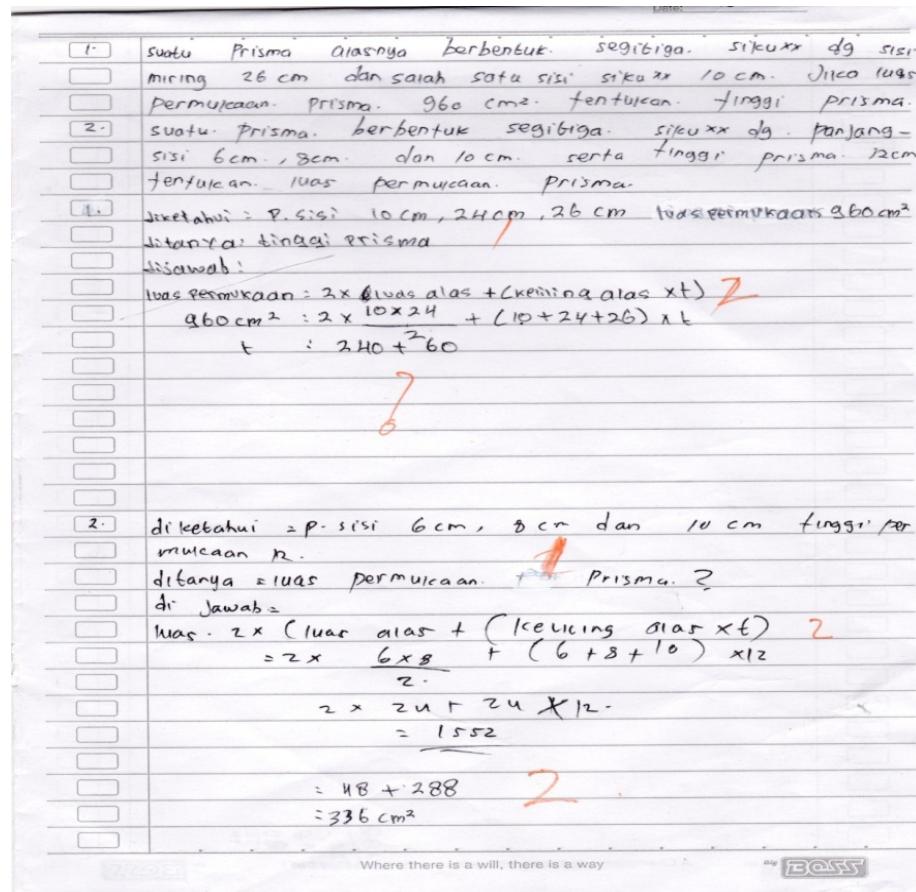 Date:
1. suatu Prisma alasnya berbentuk. segitiga. siku xx dg sisi
miring 26 cm dan salah satu sisi siku xx 10 cm. Jika luas
permukaan. Prisma. 960 cm2. tentukan. tinggi prisma.
2. suatu. Prisma. berbentuk segitiga. siku xx dg. panjang-
sisi 6 cm., 8 cm. dan 10 cm. serta tinggi prisma. 12 cm
tentukan. luas permukaan. Prisma.
1. Diketahui : P. sisi 10 cm, 24 cm, 26 cm luas permukaan 960 cm²
ditanya: tinggi prisma 1
dijawab :
luas permukaan : 2 x luas alas + (keliling alas x t) 2
960 cm² : 2 x 10 x 24 + (10 + 24 + 26) x t
2
t : 240 + 60
?
2. diketahui = P. sisi 6 cm, 8 cm dan 10 cm tinggi per
mukaan 12.
ditanya = luas permukaan. Prisma. ? 1
di Jawab =
luas. 2 x (luas alas + (keliling alas x t) 2
= 2 x 6 x 8 + (6 + 8 + 10) x 12
2.
2 x 24 + 24 x 12.
= 1552
= 48 + 288 2
= 336 cm²
Where there is a will, there is a way
Big BOSS